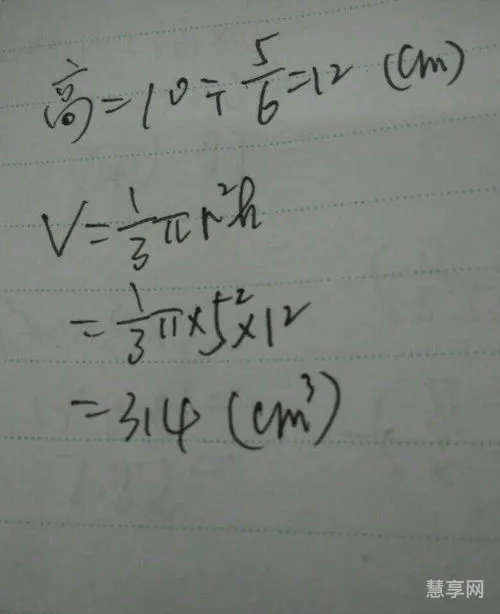 高=10÷5/6=12 (cm)
V=1/3πr²h
=1/3π×5²×12
=314 (cm³)
慧享网